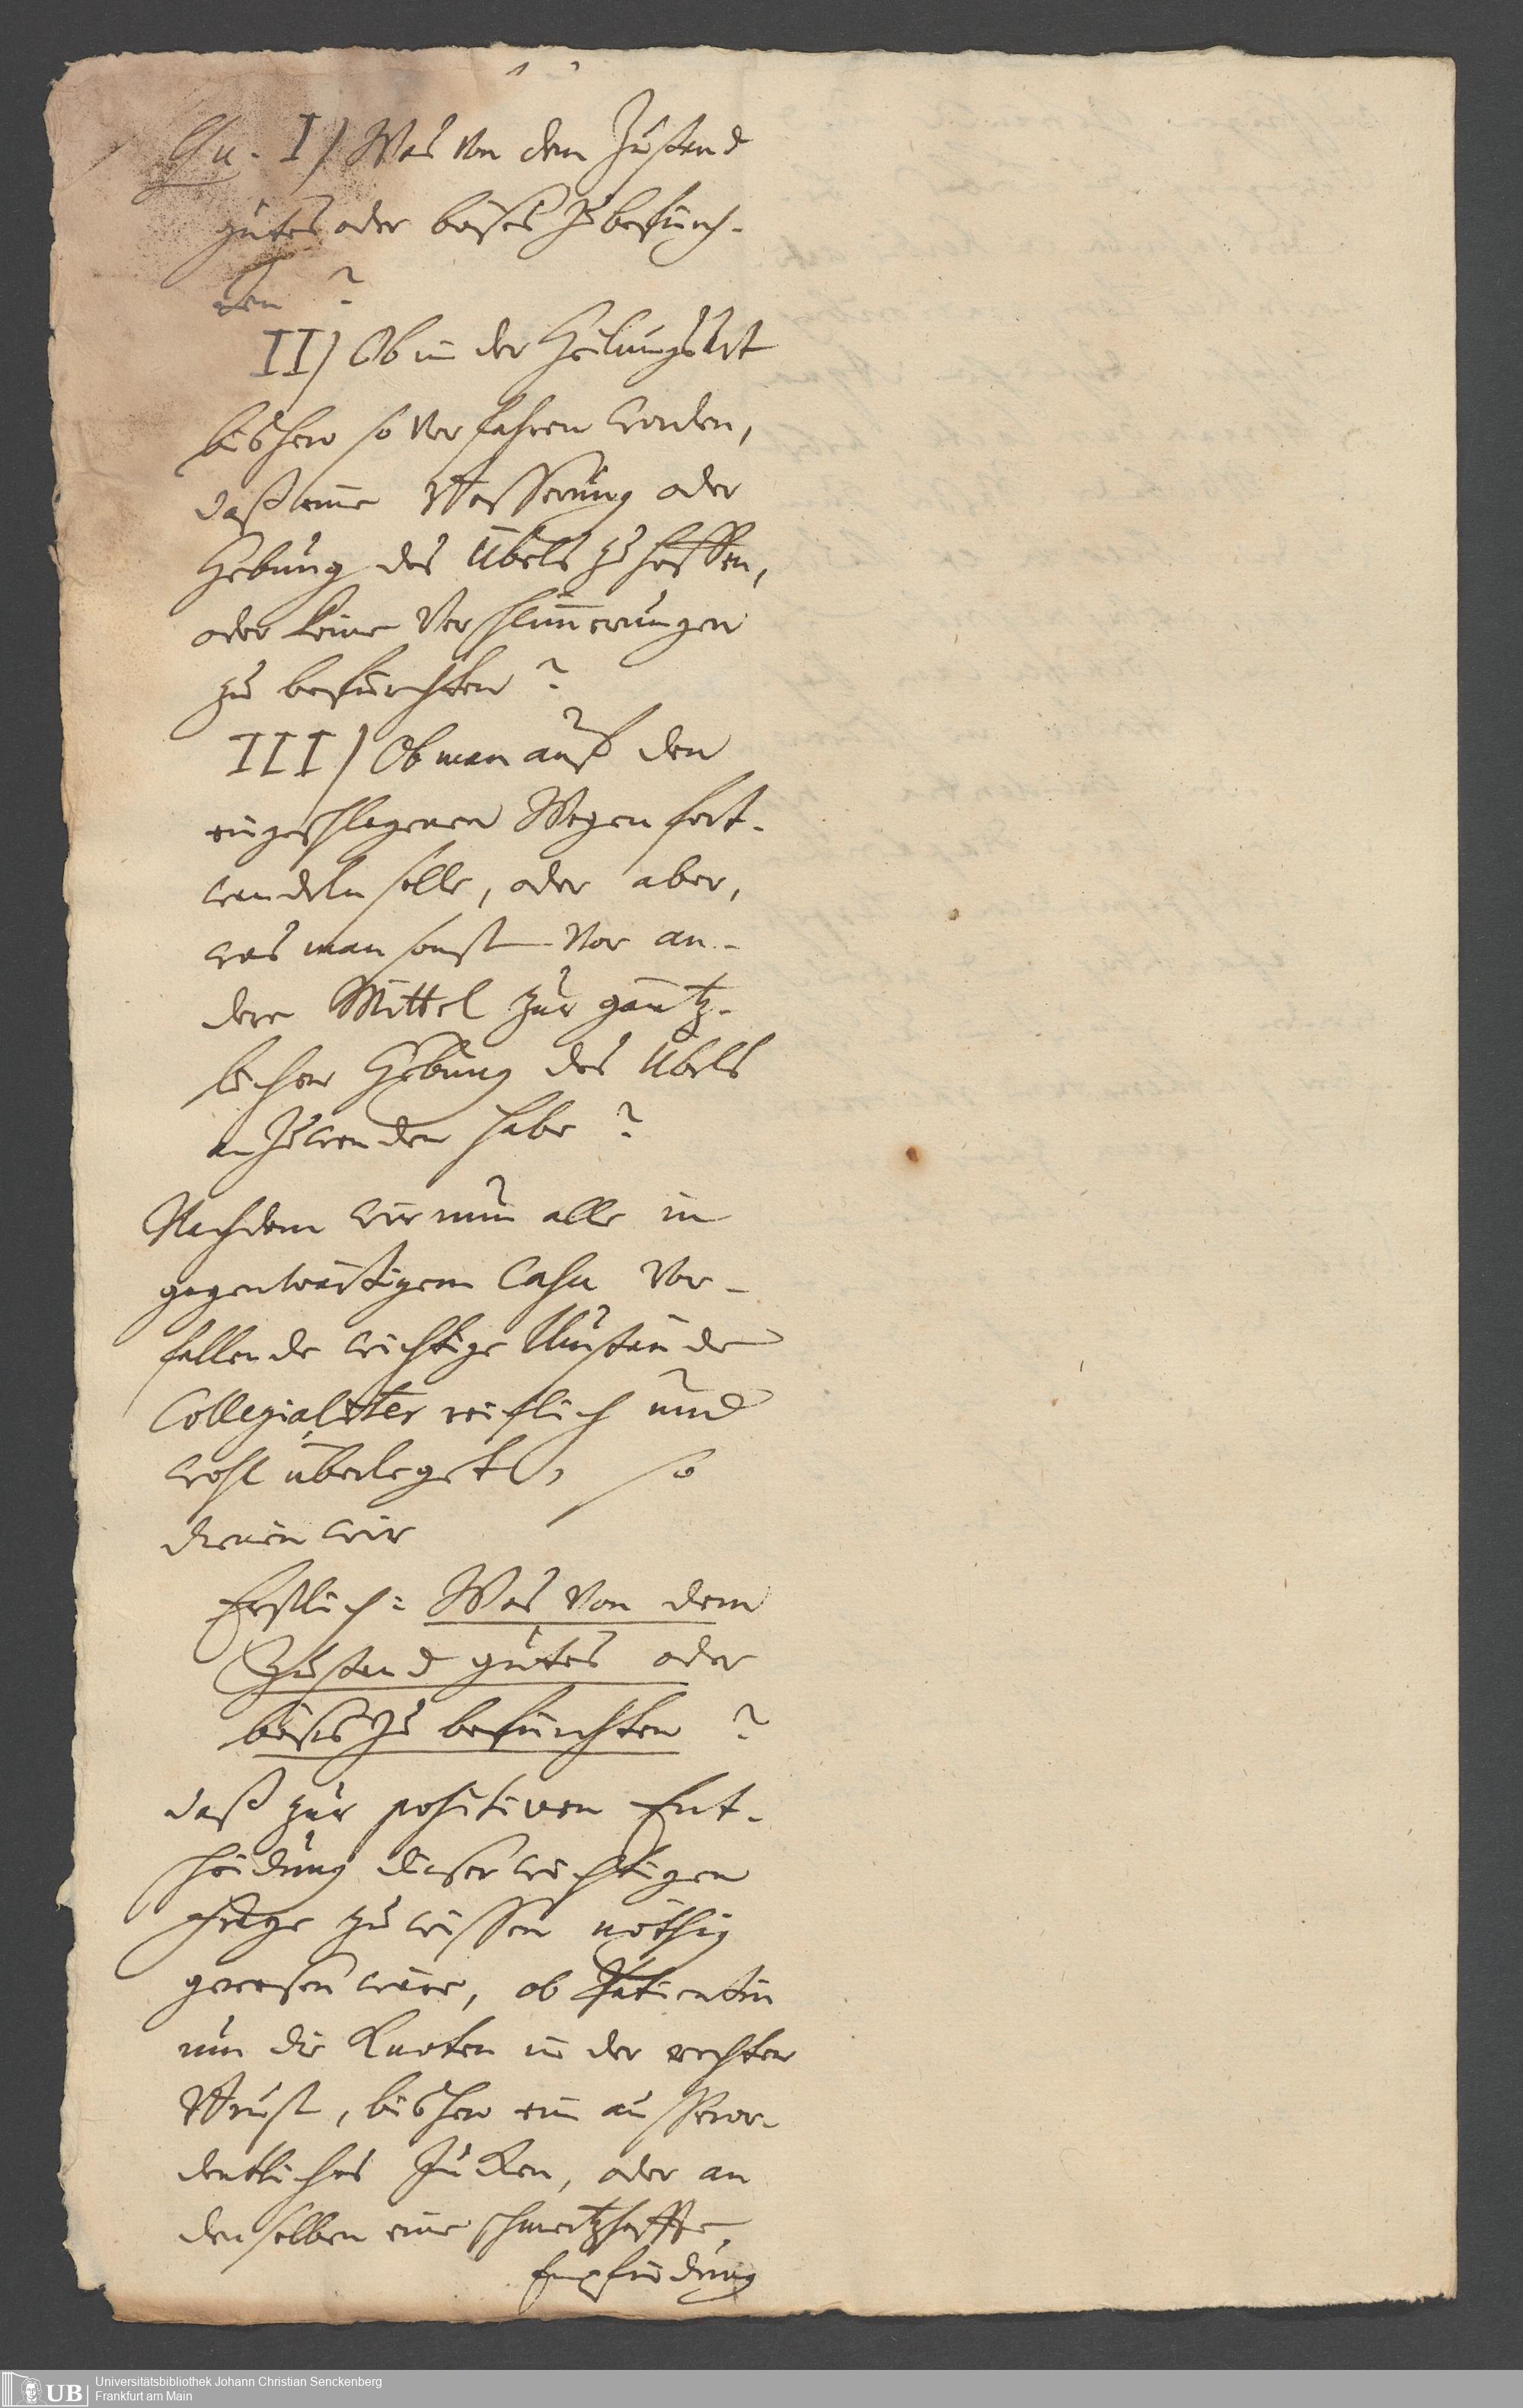 Qu. I) Was von dem Zustand
gutes oder böses zu befürch-
ten ?
II) Ob in der Heilungs Art
bishero so verfahren worden,
daß eine Besserung oder
Hebung des Übels zu hoffen,
oder keine Verschlim̅erungen
zu befürchten ?
III) Ob man auf den
eingeschlagenen Wegen fort-
wandeln solle, oder aber,
was man sonst vor an-
dere Mittel zur gäntz-
lichen Hebung des Übels
anzuwenden habe ?
Nachdem wir nun alle in
gegenwärtigem Casu vor-
fallende wichtige Umstände
Collegialiter reiflich und
wohl überleget, so
dienen wir
Erstlich: Was von dem
Zustand gutes oder
böses zu befürchten ?
daß zur positiven Ent-
scheidung dieser wichtigen
Frage zu wissen nöthig
gewesen wäre, ob Patientin
um die Knoten in der rechten
Brust, bishero ein ausseror-
dentliches Jucken, oder an
denselben eine schmertzhaffte
Empfindung
UB
Universitätsbibliothek Johann Christian Senckenberg
Frankfurt am Main